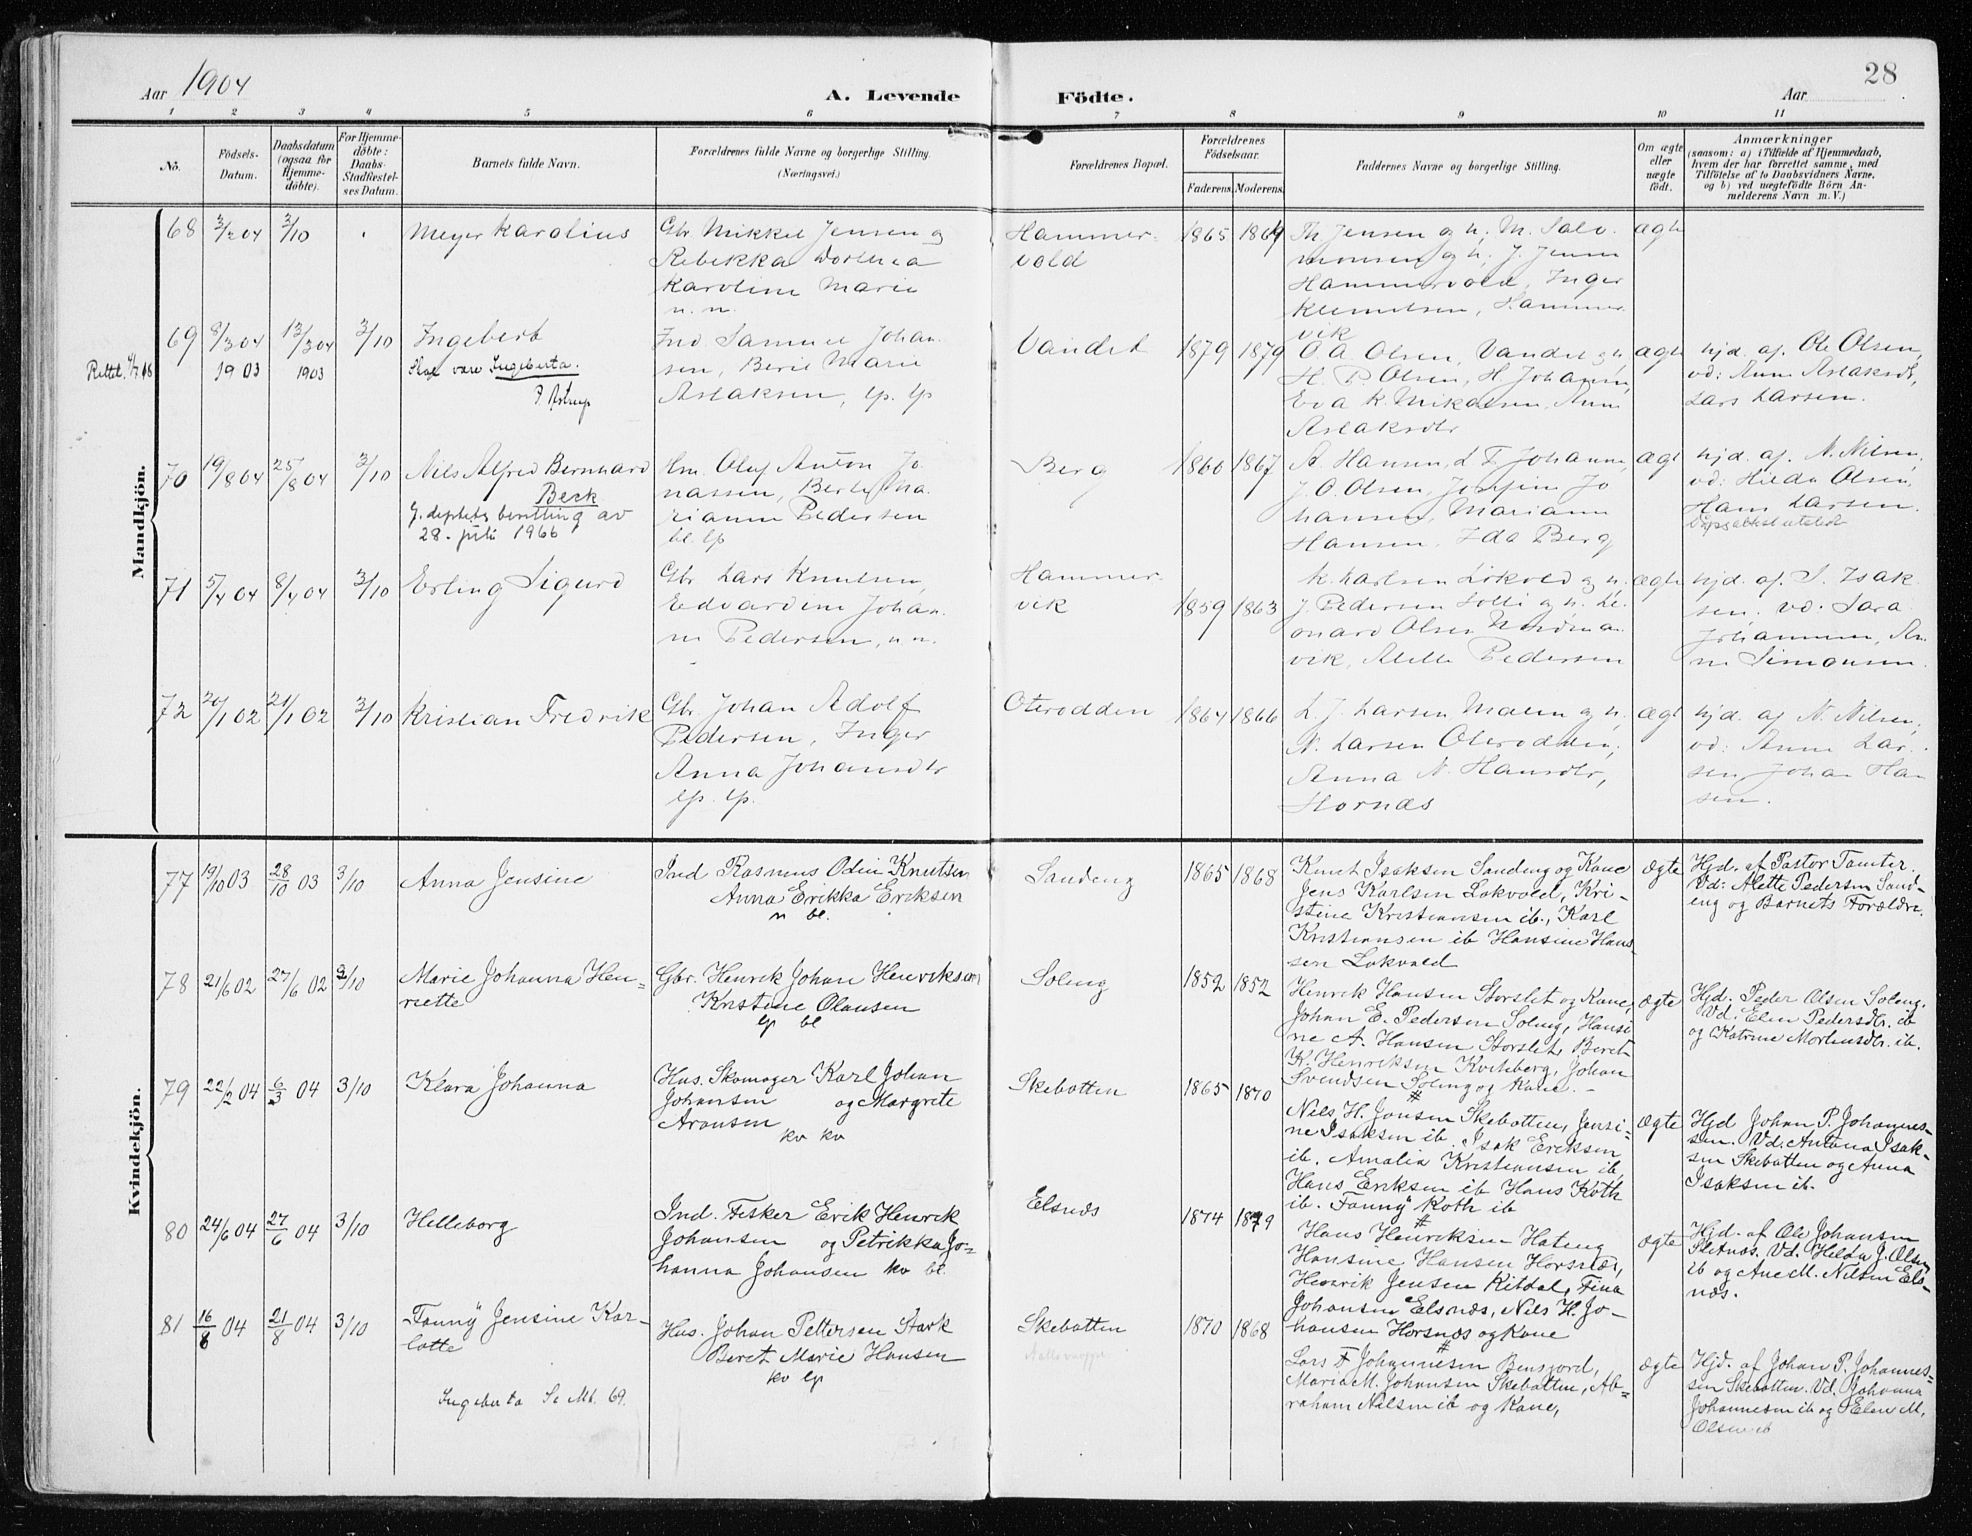 Aar 1904
A. Levende Födte.
Aar
28
1 2 3 4 5 6 7 8 9 10 11
No.
Födsels-
Datum.
Daabsdatum
(ogsaa for
Hjemme-
döbte).
For Hjemme-
döbte:
Daabs-
Stadfæstel-
ses Datum.
Barnets fulde Navn.
Forældrenes fulde Navne og borgerlige Stilling.
(Næringsvei.)
Forældrenes Bopæl.
Forældrenes
Födselsaar.
Faderens. Moderens.
Faddernes Navne og borgerlige Stilling.
Om ægte
eller
uægte
födt.
Anmærkninger
(saasom: a) i Tilfælde af Hjemmedaab,
hvem der har forrettet samme, med
Tilföielse af to Daabsvidners Navne,
og b) ved uægtefödte Börn An-
melderens Navn m. V.)
Mandkjön.
68 3/2 04 3/10 Meyer Karolius
Gbr Mikkel Jensen og
Rebekka Dorthea
Karoline Marie
n. n.
Hammer-
vold
1865 1864
Th Jensen og h. M. Salo-
monsen og h. J. Jensen
Hammervold, Inger
Klemetsen, Hammer
vik
ægte
69 8/3 04 13/3 04 3/10 Ingebert
Rettet 4/7 18 1903 1903 Skal være Ingeberta.
P. Astrup
Ind Samuel Johan-
sen, Berit Marie
Aslaksen, lp. lp
Vandet
1879 1879
O. A. Olsen, Vandet og h,
H. P. Olsen, H. Johansen,
Eva K. Mikalsen, Anne
Aslaksdtr
ægte
hjd. af. Ole Olsen,
vd: Anne Aslaksdtr,
Lars Larsen.
70 19/8 04 25/8 04 3/10 Nils Alfred Bernhard
Beck
J. deptets bevilling av
28. juli 1966
Hm. Oluf Anton Jo-
nassen, Berte Ma-
rianne Pedersen
bl. lp
Berg
1860 1867
A. Hansen, L. T. Johanne,
J. O. Olsen, Josefine Jo
hansen, Marianne
Hansen, Ida Berg
ægt
hjd. af. N. Nilsen,
vd: Hilda Olsen,
Hans Larsen.
71 5/4 04 8/4 04 3/10 Erling Sigurd
Gbr Lars Knutsen,
Edvardine Johan-
ne Pedersen, n. n.
Hammer-
vik
1859 1863
K. Karlsen Lökvold og h.
J. Pedersen Solli og h. Le-
onard Olsen Nordman-
vik, Alette Pedersen
ægte
hjd. af. S. Isak-
sen. vd. Sara
Johannesen, An-
ne Simonsen.
72 20/1 02 21/1 02 3/10 Kristian Fredrik
Gbr Johan Adolf
Pedersen, Inger
Anna Johansdtr
lp. lp.
Oterodden
1864 1866
L. J. Larsen Malen og h.
N. Larsen Oterodden,
Anna N. Hansdtr,
Hornæs
ægt
hjd. af N. Nilsen,
vd: Anne Lar-
sen Johan Han
sen.
Kvindekjön.
77 19/10 03 28/10 03 3/10 Anna Jensine
Ind Rasmus Odin Knutsen
Anna Erikka Eriksen
n bl.
Sandeng
1865 1868
Knut Isaksen Sandeng og Kone
Jens Karlsen Lökvold, Kri-
stine Kristiansen ib., Karl
Kristiansen ib Hansine Han-
sen Lökvold
ægte
Hjd. af Pastor Tamter.
Vd: Alette Pedersen Sand-
eng og Barnets Forældre.
78 21/6 02 27/6 02 3/10 Marie Johanna Hen-
riette
Gbr. Henrik Johan Henriksen
Kristine Olausen
lp bl
Soleng
1852 1852
Henrik Hansen Storslet og Kone,
Johan E. Pedersen Soleng, Hansi
ne A. Hansen Storslet, Beret
K. Henriksen Kviteberg, Johan
Svendsen Soleng og Kone.
ægte
Hjd. Peder Olsen Soleng.
Vd. Elen Pedersdtr. ib
og Katrine Mortensdtr. ib.
79 22/2 04 6/3 04 3/10 Klara Johanna
Hus. Skomager Karl Johan
Johansen og Margrete
Aronsen
kv kv
Skebotten
1865 1870
#
Nils H. Jonsen Skebotten, Jensi-
ne Isaksen ib. Isak Eriksen
ib. Amalia Kristiansen ib,
Hans Eriksen ib Hans Koth
ib. Fanny Koth ib
ægte
Hjd Johan P. Johannes-
sen. Vd. Antona Isak-
sen Skebotten og Anna
Isaksen ib.
80 24/6 04 27/6 04 3/10 Helleborg
Ind. Fisker Erik Henrik
Johansen og Petrikka Jo-
hanna Johansen kv bl.
Elsnes
1874 1879
#
Hans Henriksen Hateng
Hansine Hansen Horsnes,
Henrik Jensen Kitdal, Fina
Johansen Elsnæs, Nils H. Jo-
hansen Horsnæs og Kone
ægte
Hjd. af Ole Johansen
Sletnæs. Vd. Helda J. Olsen
ib og Ane M. Nilsen Els-
næs.
81 16/8 04 21/8 04 3/10 Fanny Jensine Kar-
lotte
Hus. Johan Pettersen Stark
Beret Marie Hansen
kv lp
Skebotten
1870 1868
#
Lars F Johannesen Bensjord,
Maria M. Johansen Skebotten, Ab-
raham Nilsen ib og Kone,
ægte
Hjd. af Johan P. Johannes-
sen Skebotten. Vd. Johanna
Johannesen ib og Elen M.
Olsen ib
Ingeberta Se Mk. 69.